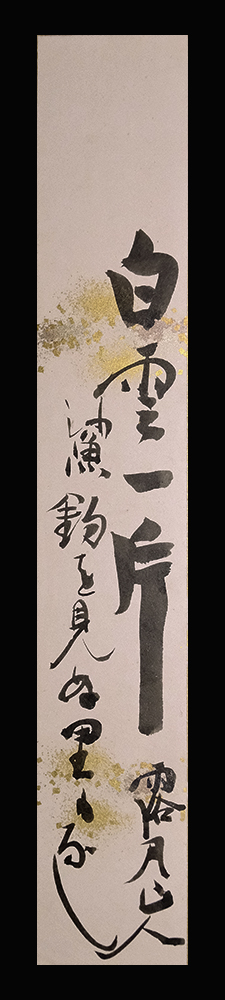 白雲一片
沙魚釣を見ぬ里もなし
露月山人